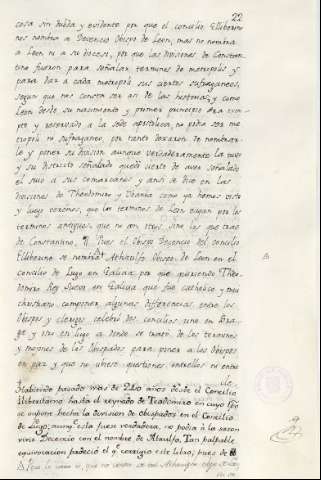 22
cosa sin dubda y evidente por que el concilio Elliberino
nos nombra a Decencio Obispo de Leon, mas no nombra
a Leon ni a su diocesi, por que las divisiones de Constan
tino fueron para señalar terminos de metropolis y
para dar a cada metropoli sus ciertos sufraganeos,
segun que nos consta ser asi de las historias, y como
Leon desde su nacimiento y primer principio era exem
pto y reservado a la sede apostolica, no podia ser me
tropoli ni sufraganeo, por tanto dexaron de nombrar
lo y poner su division aunque verdaderamente la tuvo
y su districto señalado quedó cierto de aver señalado
el suio a sus comarcanos y ansi se dice en las
divisiones de Theodomiro y Vvamba como ya hemos visto
y luego veremos, que los terminos de Leon sigan por los
terminos antiguos, que no son otros, sino los que traq
de Constantino. Pues el Obispo Decencio del concilio
Elliberino se nombró Obispo de Leon en el
concilio de Lugo en Galicia, por que queriendo Theo
domiro Rey Suevo en Galicia que fue catholico y mui
christiano componer algunas differencias entre los
Obispos y clerigos celebró dos concilios uno en Bra
ga y otro en Lugo a donde se trató de los terminos
y mojones de los Obispados para poner a los obispos
en paz y que no uviese questiones entrellos ni entre
Habiendo pasado mas de 240 años desde el Concilio
Illiberitano hasta el reynado de Teodomiro en cuyo tpo
se supone hecha la division de obispados en el Concilio
de Lugo, aunq esta fuese verdadera, no podia à la sazon
vivir Decencio con el nombre de Ataulfo. Tan palpable
equivocacion padeció el q corrigio este libro, pues de